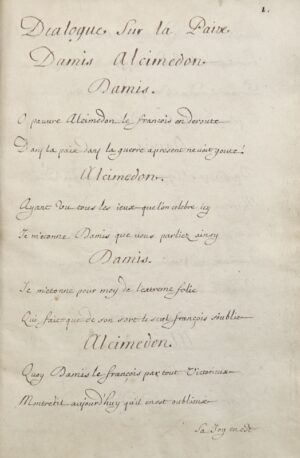 1.
Dialogue sur la Paix
Damis Alcimedon
Damis.
O pauure Alcimedon le françois en deroute
Dans la paix dans la guerre apresent ne voit goute!
Alcimedon.
Ayant Veu tous les ieux que l'on celebre icy
Je m'etonne Damis que vous parliez ainsy
Damis.
Je m'etonne pour moy de l'extreme folie
Qui fait que de son sort le seul françois s'oublie
Alcimedon.
Quoy Damis le françois par tout Victorieux
Montretil aujourd'huy qu'il en est oublieux
Sa Joy